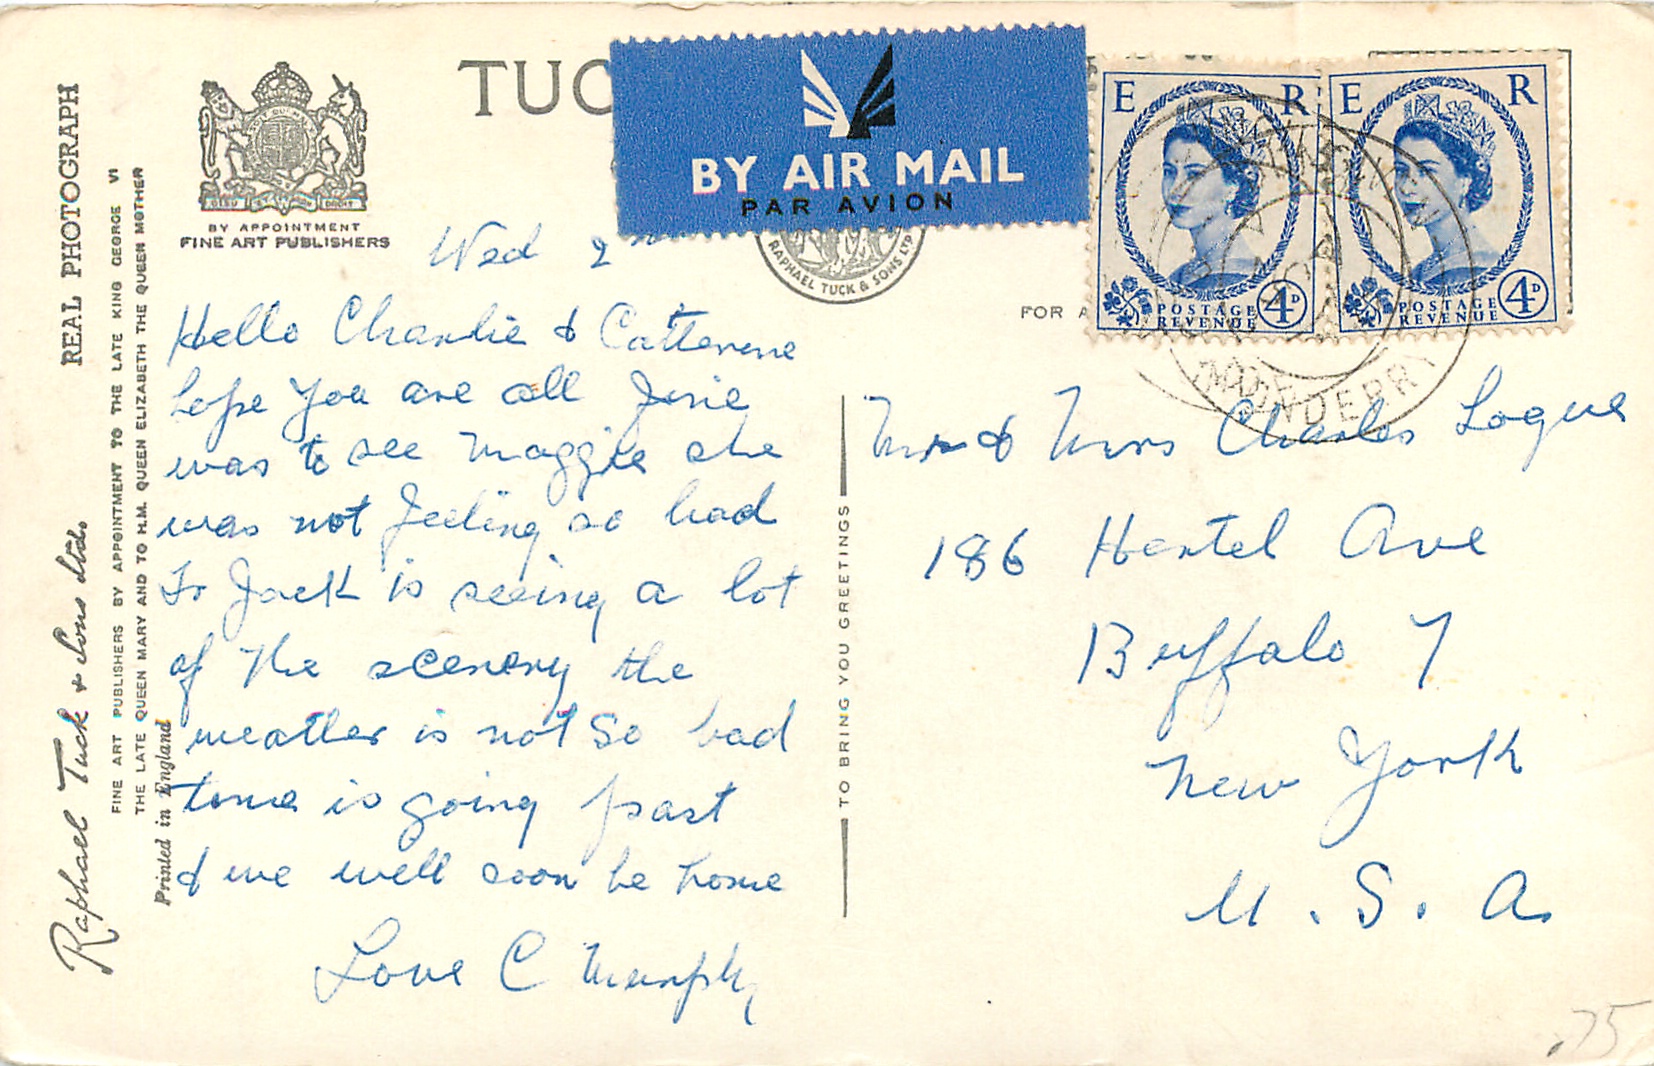 REAL PHOTOGRAPH
Raphael Tuck & Sons Ltd.
FINE ART PUBLISHERS BY APPOINTMENT TO THE LATE KING GEORGE VI
THE LATE QUEEN MARY AND TO H.M. QUEEN ELIZABETH THE QUEEN MOTHER
Printed in England
DIEU ET MON DROIT
BY APPOINTMENT
FINE ART PUBLISHERS
TUC
BY AIR MAIL
PAR AVION
RAPHAEL TUCK & SONS LTD
FOR A
E R
POSTAGE
REVENUE
4D
E R
POSTAGE
REVENUE
4D
Wed 2nd
Hello Charlie & Catterene
hope you are all fine
was to see Maggie she
was not feeling so bad
Fr Jack is seeing a lot
of the scenery the
weather is not so bad
time is going past
& we well soon be home
Love C Murphy
TO BRING YOU GREETINGS
Mr & Mrs Charles Logue
186 Hertel Ave
Buffalo 7
New York
U.S.A.
.75